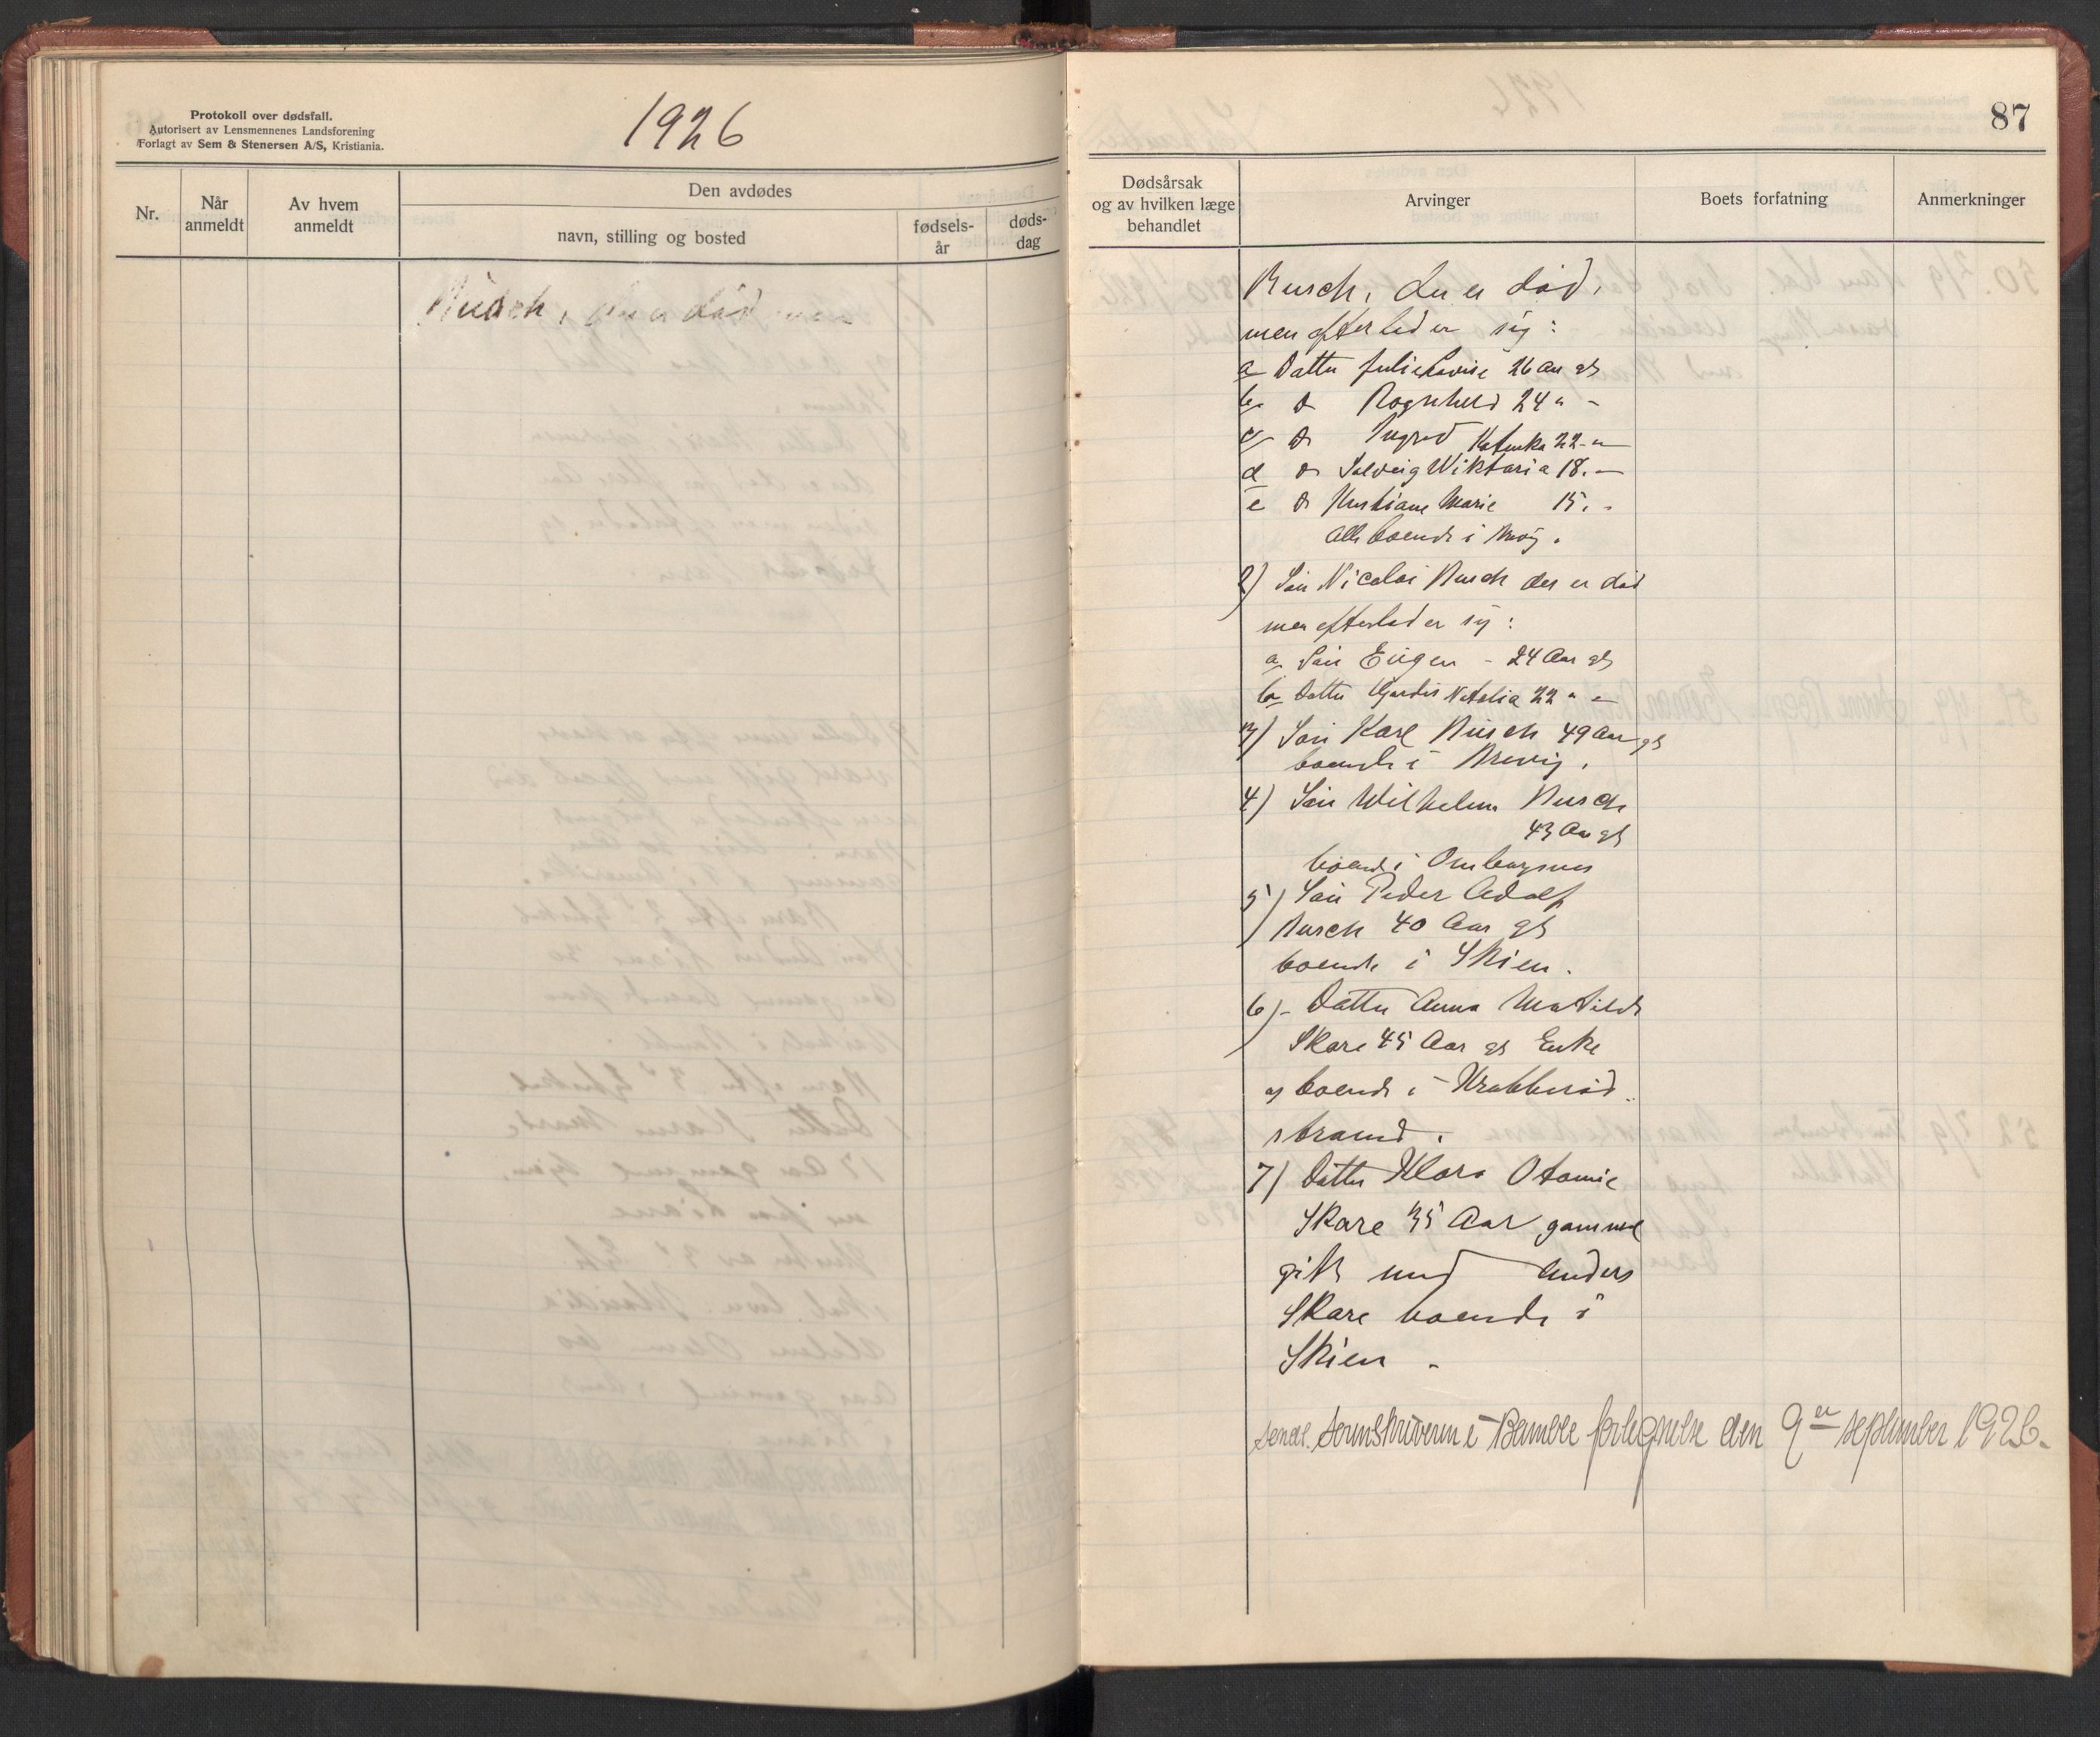 Protokoll over dødsfall.
Autorisert av Lensmennenes Landsforening
Forlagt av Sem & Stenersen A/S, Kristiania.
1926
Nr.
Når anmeldt
Av hvem anmeldt
Den avdødes
navn, stilling og bosted
fødsels-år
døds-dag
Busch, der er død men
87
Dødsårsak og av hvilken læge behandlet
Arvinger
Boets forfatning
Anmerkninger
Busch, der er död,
men efterlader sig:
a Datter Julie Lovise 26 Aar gl
b. Do Ragnhild 24 " -
c Do Ingrid Katinka 22 - "
d Do Solveig Wiktoria 18. -
e Do Kristiane Marie 15. -
Alle boende i Brevig.
2) Sön Nicolai Busch der er död
men efterlader sig:
a. Sön Eugen - 24 Aar gl
b Datter Hjerdis Natalia 22 " -
3) Sön Karl Busch 49 Aar gl
boende i Brevig.
4) Sön Wilhelm Busch
43 Aar gl
boende i Ombergsnes
5) Sön Peder Adolf
Busch 40 Aar gl
boende i Skien.
6) - Datter Anna Matilde
Skare 45 Aar gl Enke
og boende i Krabberöd
strand.
7) Datter Klara Otomie
Skare 35 Aar gammel
gift med Anders
Skare boende i
Skien -
Sendt Sorenskriveren i Bamble fortegnelse den 9de september 1926.